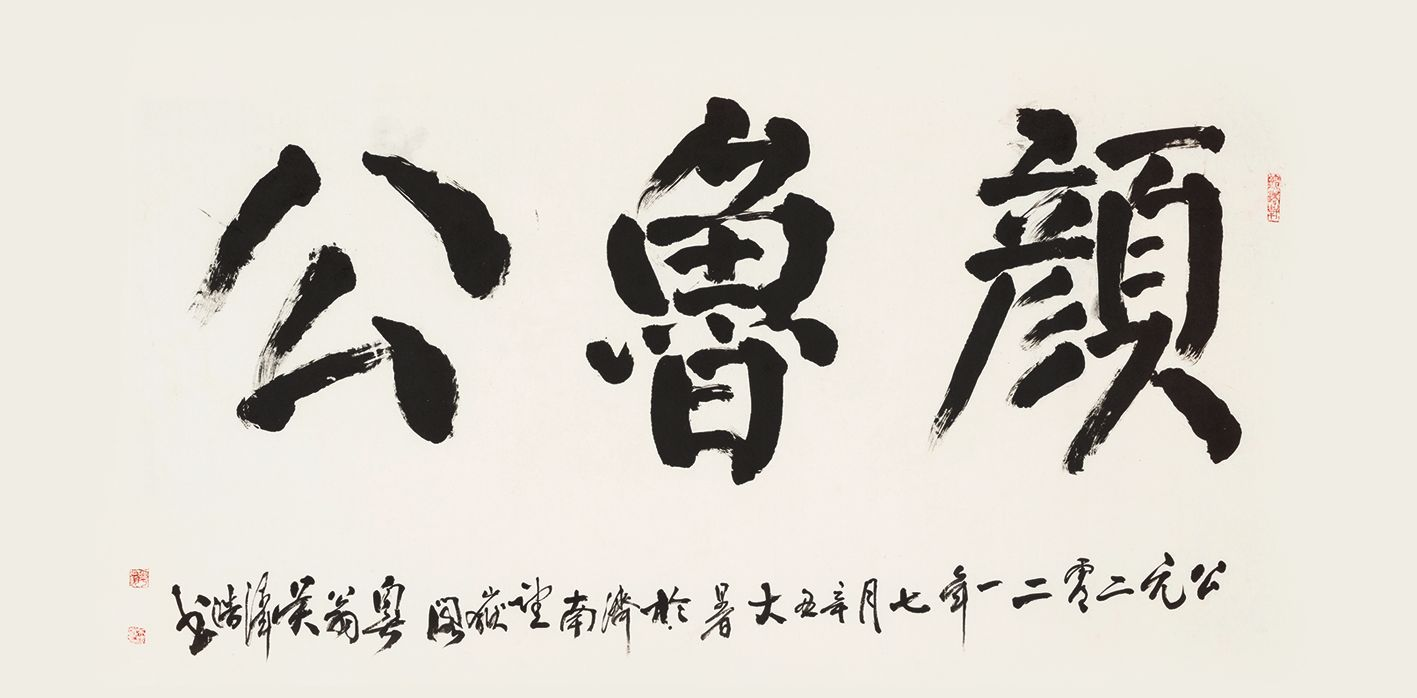 顔魯公
公元二零二一年七月辛丑大暑於濟南望嶽閣粵翁吳澤浩書